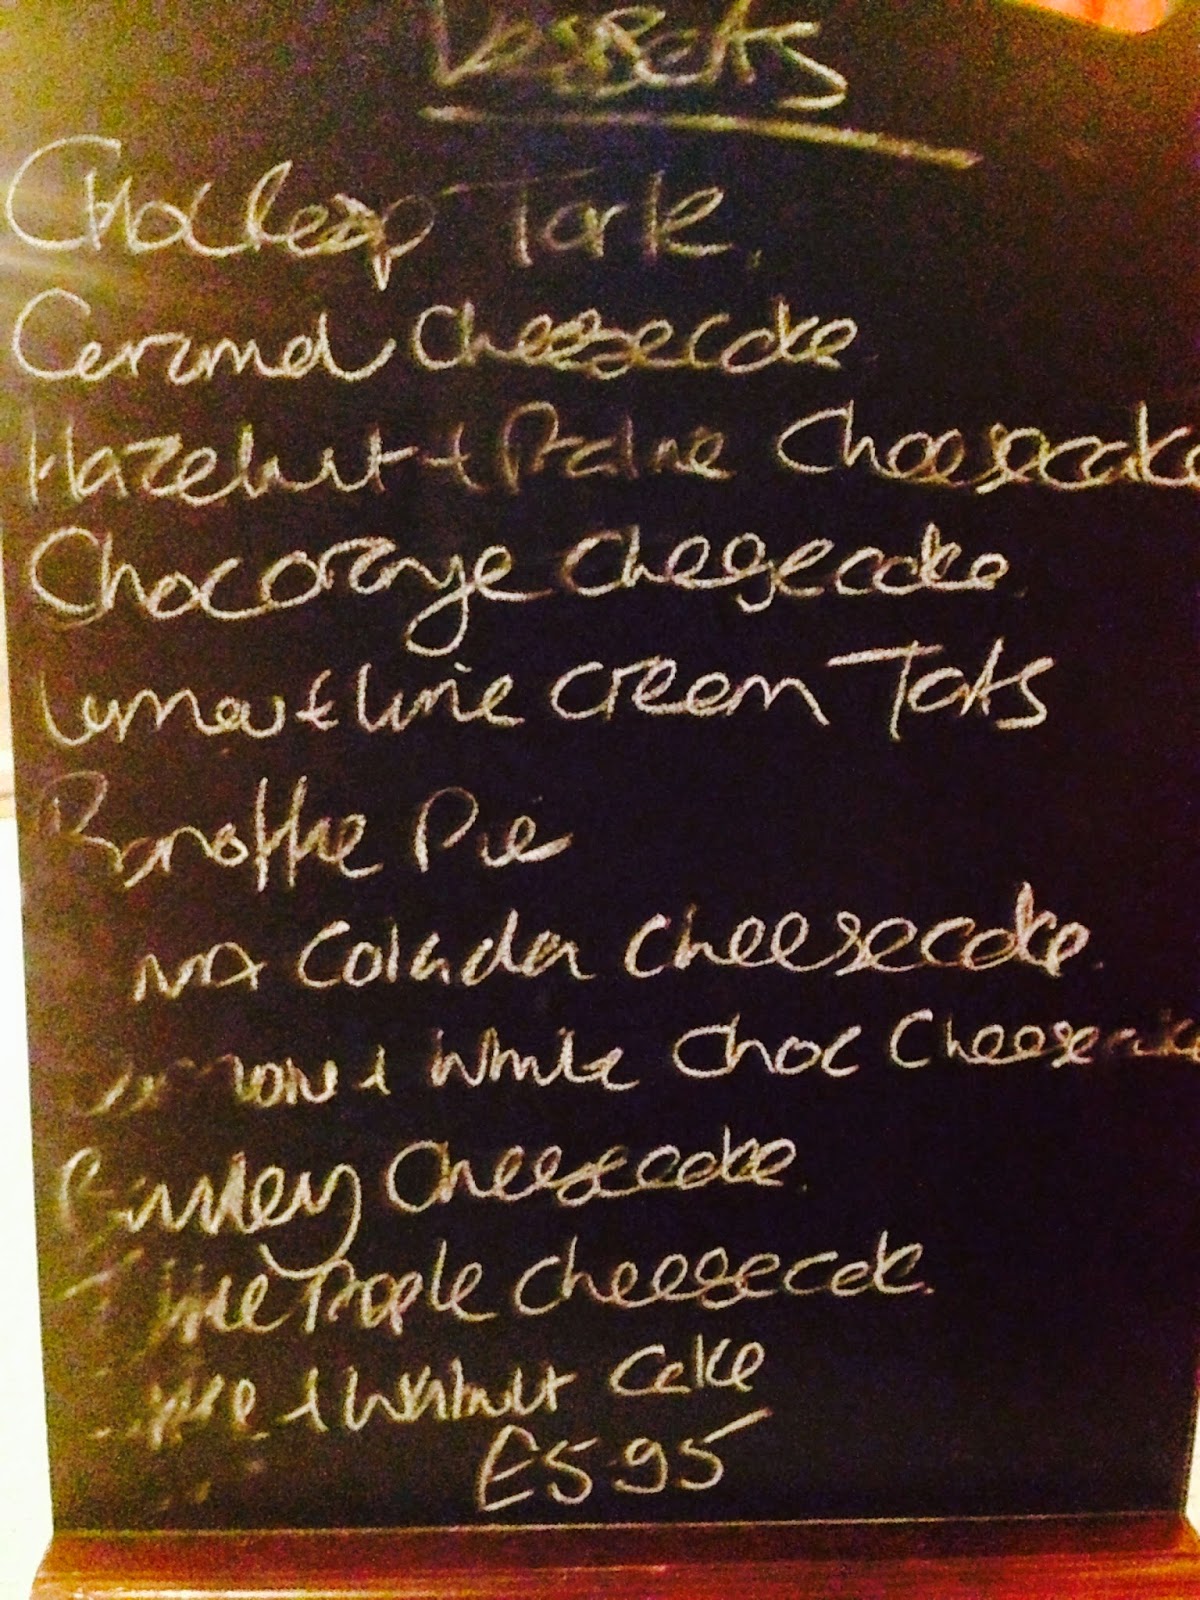 Desserts
Choc Reap Torte.
Caramel Cheesecake
Hazelnut + Praline Cheesecake
Chocorange Cheesecake.
Lemon & Lime Cream Tarts
Banoffie Pie
Colada Cheesecake.
& White Choc Cheesecake
Cheesecake.
Apple Cheesecake.
& Walnut Cake
£5.95